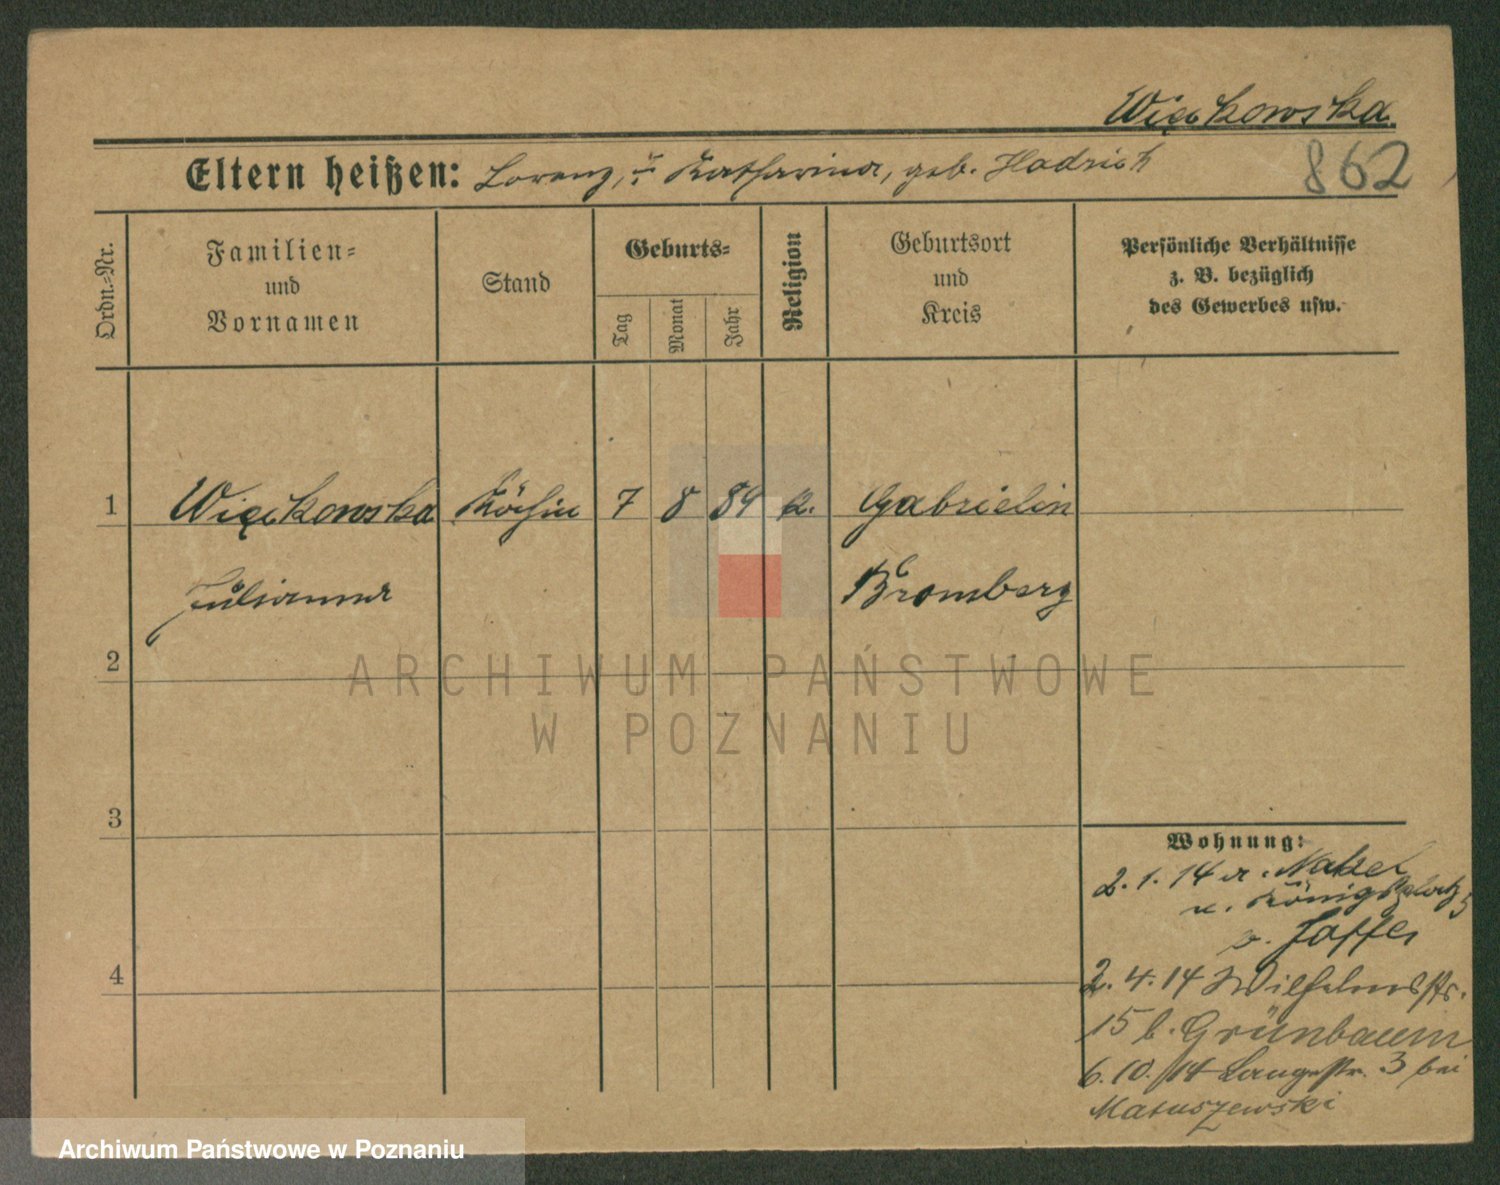 Więckowska
Eltern heißen: Lorenz, u. Katharina, geb. Hadrich
862
Ordn.-Nr.
Familien-
und
Vornamen
Stand
Geburts-
Tag
Monat
Jahr
Religion
Geburtsort
und
Kreis
Persönliche Verhältnisse
z. B. bezüglich
des Gewerbes usw.
1 Więckowska Köchin 7 8 89 k. Gabrielin
Julianna Bromberg
2
ARCHIWUM PAŃSTWOWE
W POZNANIU
3
4
Wohnung:
2. 1. 14 a. Nakel
n. Königsplatz 5
b. Jaffe
2. 4. 14 Wilhelmstr.
15 b. Grünbaum
6. 10. 14 Langestr. 3 bei
Matuszewski
Archiwum Państwowe w Poznaniu